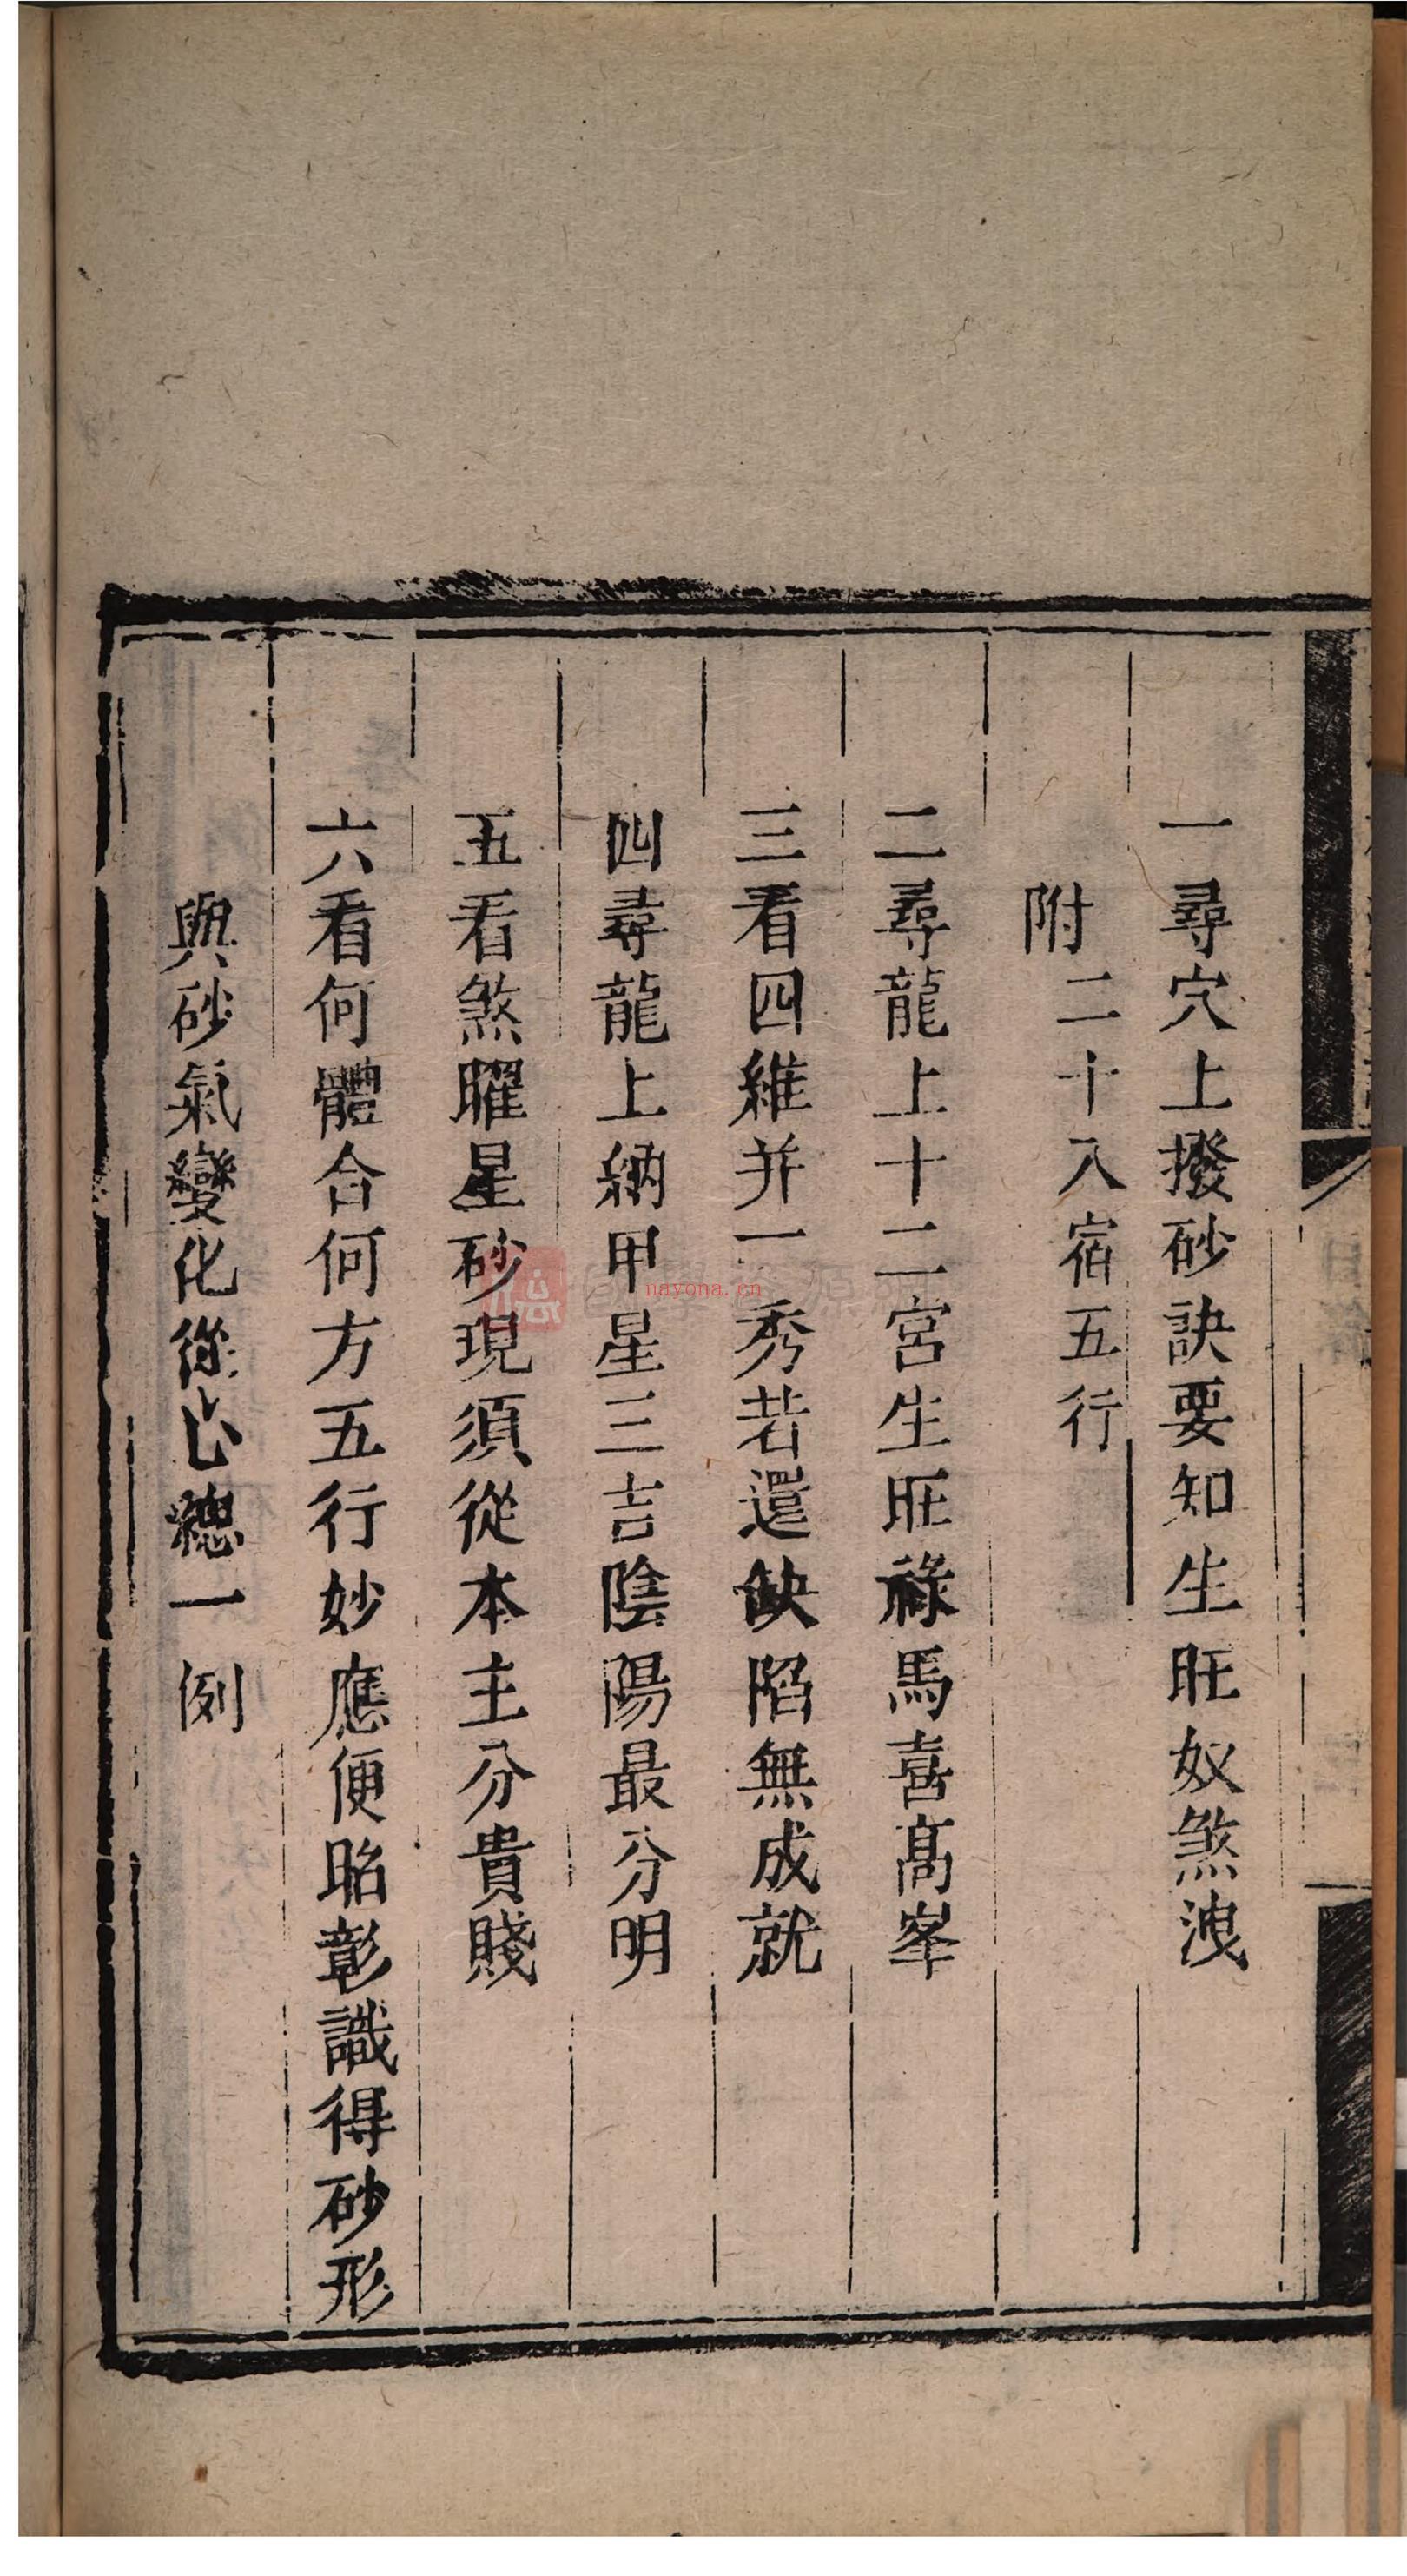 一尋穴上撥砂訣要知生旺奴煞洩
附二十八宿五行
二尋龍上十二宮生旺祿馬喜高峯
三看四維并一秀若還缺陷無成就
四尋龍上納甲星三吉陰陽最分明
五看煞曜星砂現須從本主分貴賤
六看何體合何方五行妙應便昭彰識得砂形
與砂氣變化從心總一例
nayona.cn